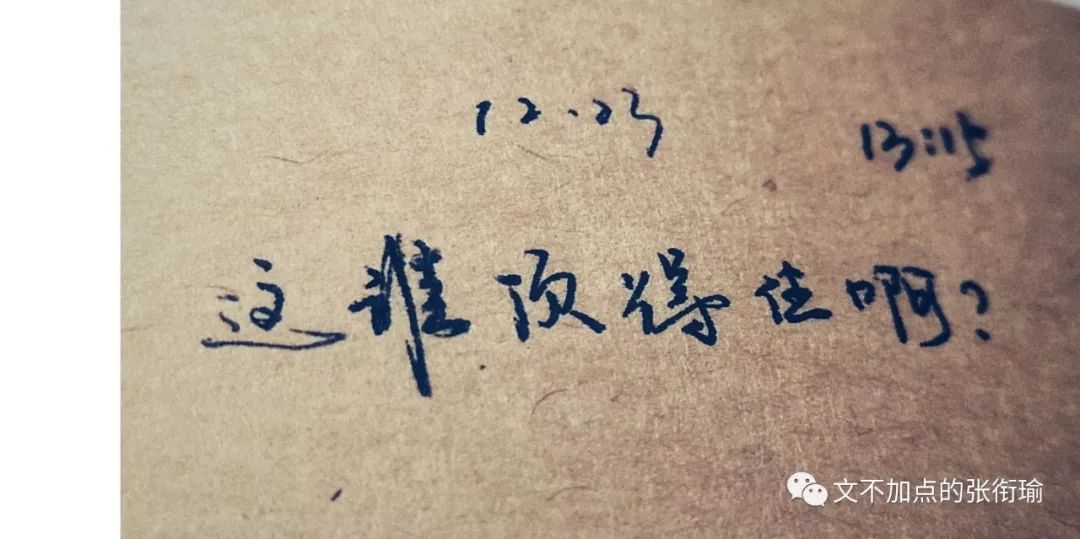 12.23
13:15
这谁顶得住啊?
文不加点的张衔瑜